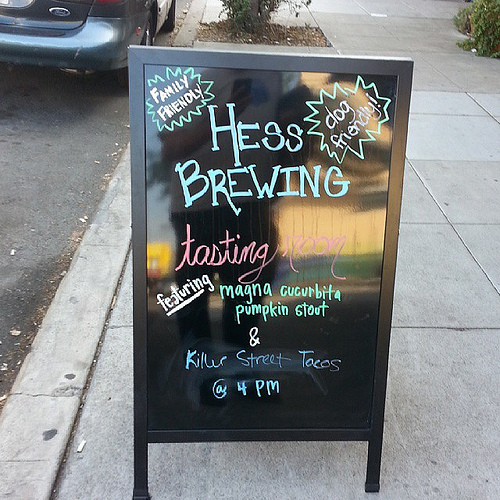 FAMILY
FRIENDLY
dog
friendly!!
HESS
BREWING
tasting room
featuring
magna cucurbita
pumpkin stout
&
Killer Street Tacos
@ 4 PM